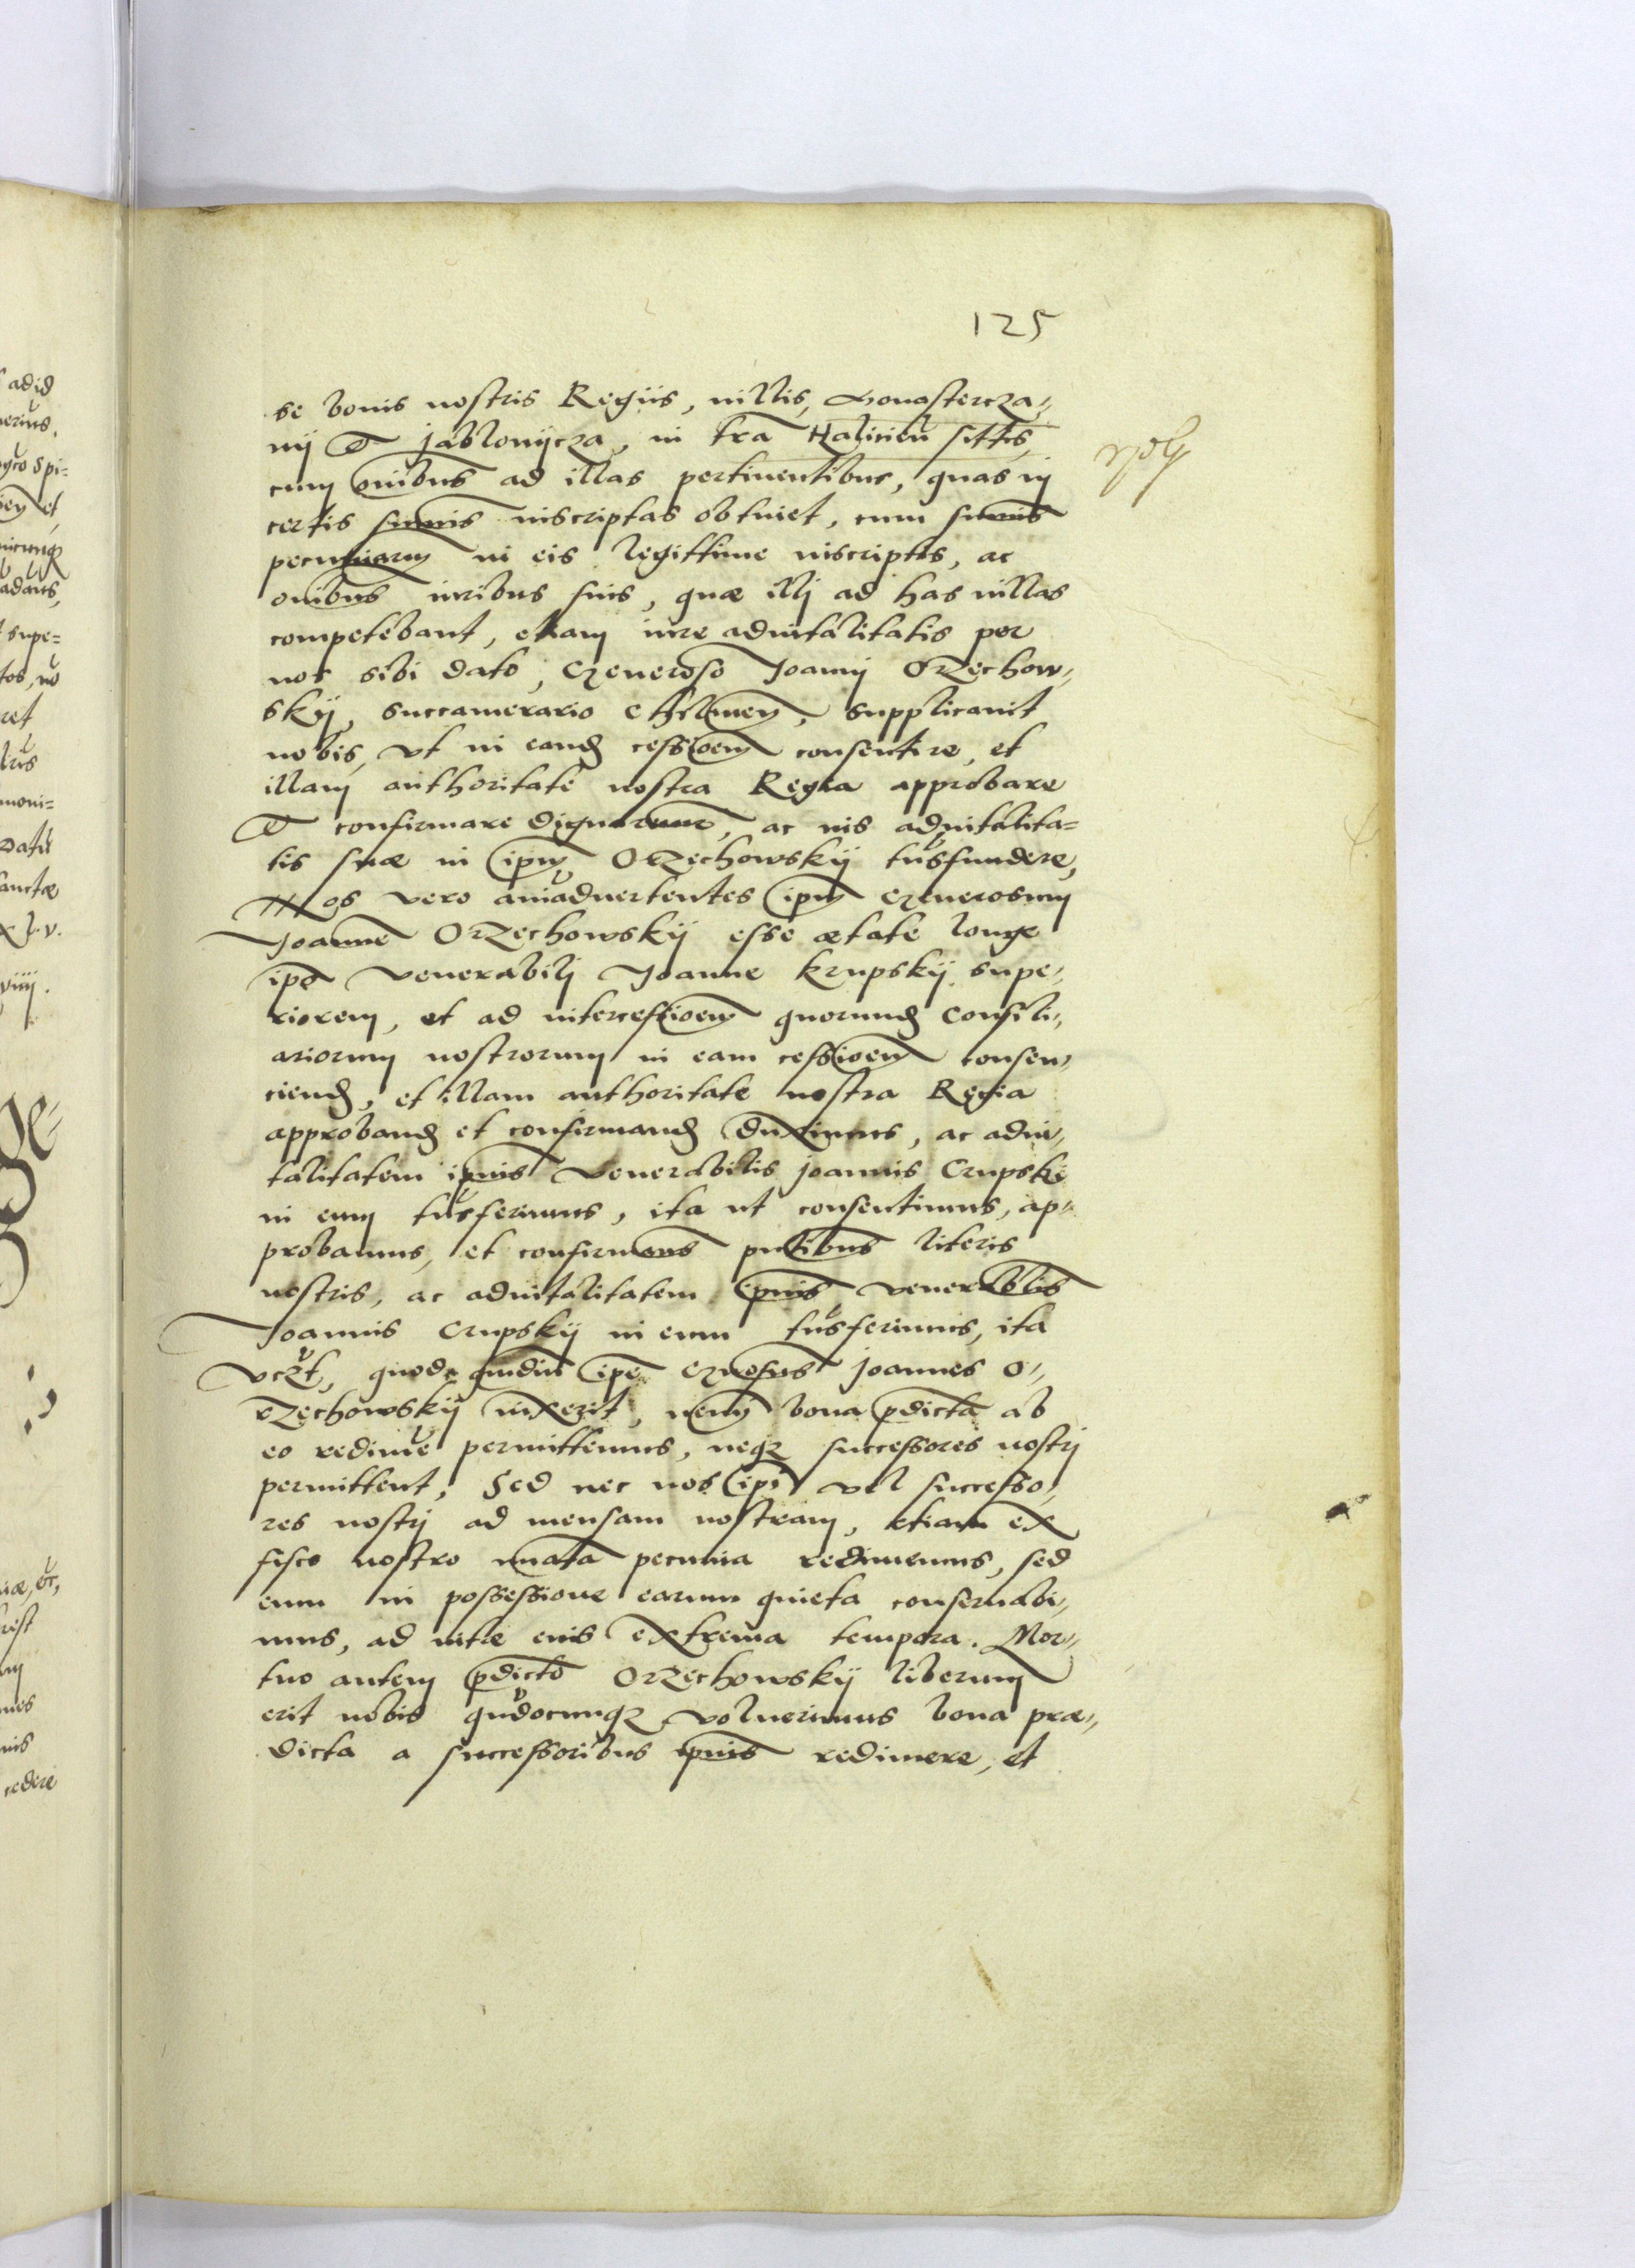 125
se bonis nostris Regiis, villis, Monastercza,,
nij et Jablonijcza, in tra Halicien sittis,
cum oibus ad illas pertinentibus, quas in
certis sumis inscriptas obtinet, cum sumis
pecuniarum in eis legittime inscriptis, ac
oibus iuribus suis, quæ illj ad has villas
competebant, etiam iure aduitalitatis per
nos sibi dato, Generoso Joannj Orzechow,,
skij, succamerario Chelmen, supplicauit
nobis, vt in eand cessioem consentire, et
illam authoritate nostra Regia approbare
et confirmare dignaremur, ac ius aduitalita=
tis suæ in ipm Orzechowskij trasfundere,
Nos vero aniaduertentes ipm Generosum
Joanne Orzechowskij esse ætate longe
ipo Venerabilj Joanne Krupskij supe,,
riorem, et ad intercessioem quorund Consili,,
ariorum nostrorum in eam cessioem consen,,
ciend, et illam authoritate nostra Regia
approband et confirmand duximus, ac adui,,
talitatem ipius Venerabilis Joannis Crupskij
in eum trasferimus, ita ut consentimus, ap,,
probamus, et confirmams pntibus literis
nostris, ac aduitalitatem ipius Venerablis
Joannis Crupskij in eum trasferimus, ita
vt, quod quidiu ipe Gnosus Joannes O,,
rzechowskij vixerit, nemj bona pdicta ab
eo redimere permittemus, neqz successores nostrj
permittent, Sed nec nos ipi vel successo,,
res nostrj ad mensam nostram, etiam ex
fisco nostro nuata pecunia redimemus, sed
eum in possessione earum quieta conseruabi,,
mus, ad vitæ eius extrema tempora. Mor,,
tuo autem pdicto Orzechowskij liberum
erit nobis qudocunqz voluerimus bona præ,,
dicta a successoribus ipius redimere, et